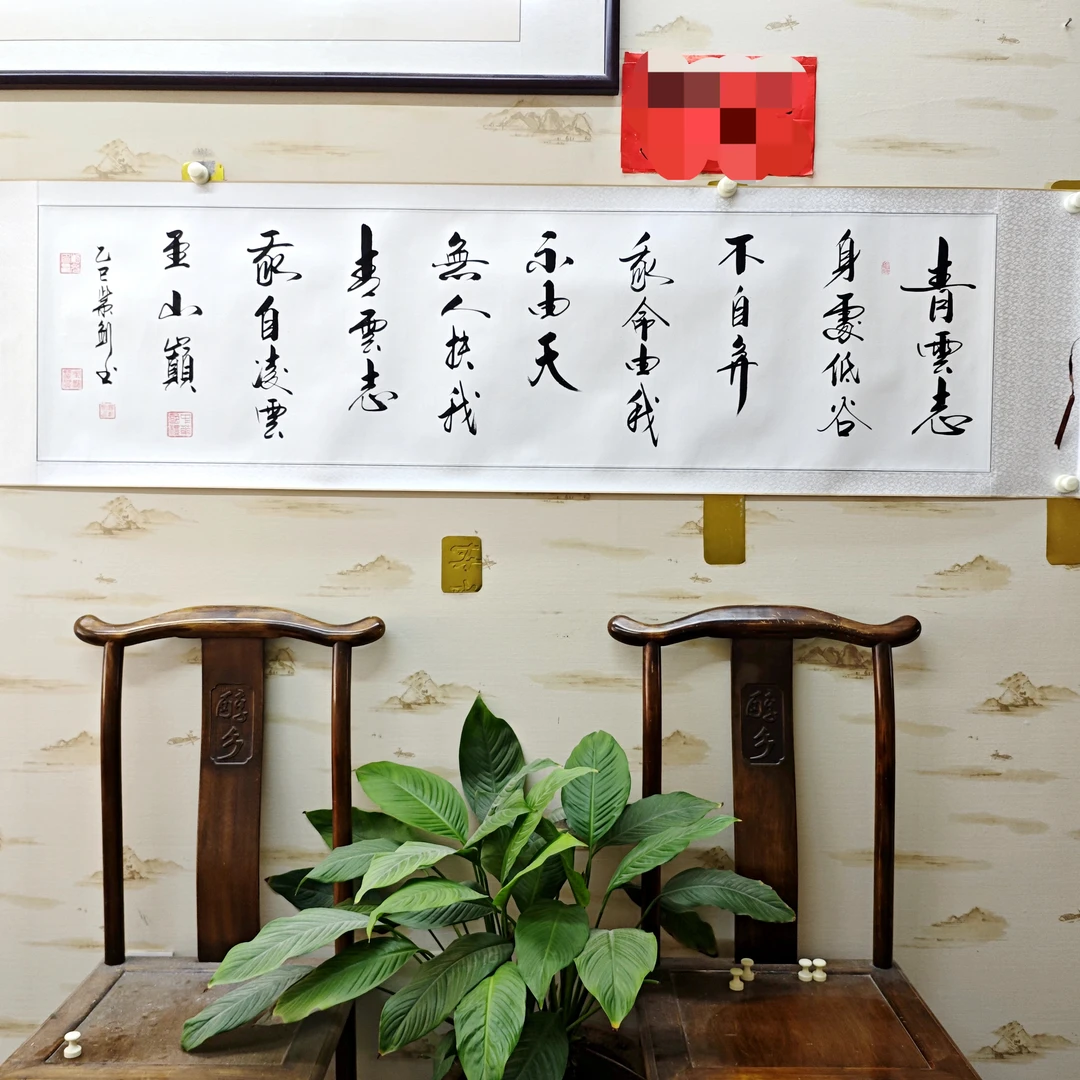 青雲志
身處低谷
不自弃
我命由我
不由天
無人扶我
青雲志
我自凌雲
至山巔
乙巳 紫劍书
醇
醇